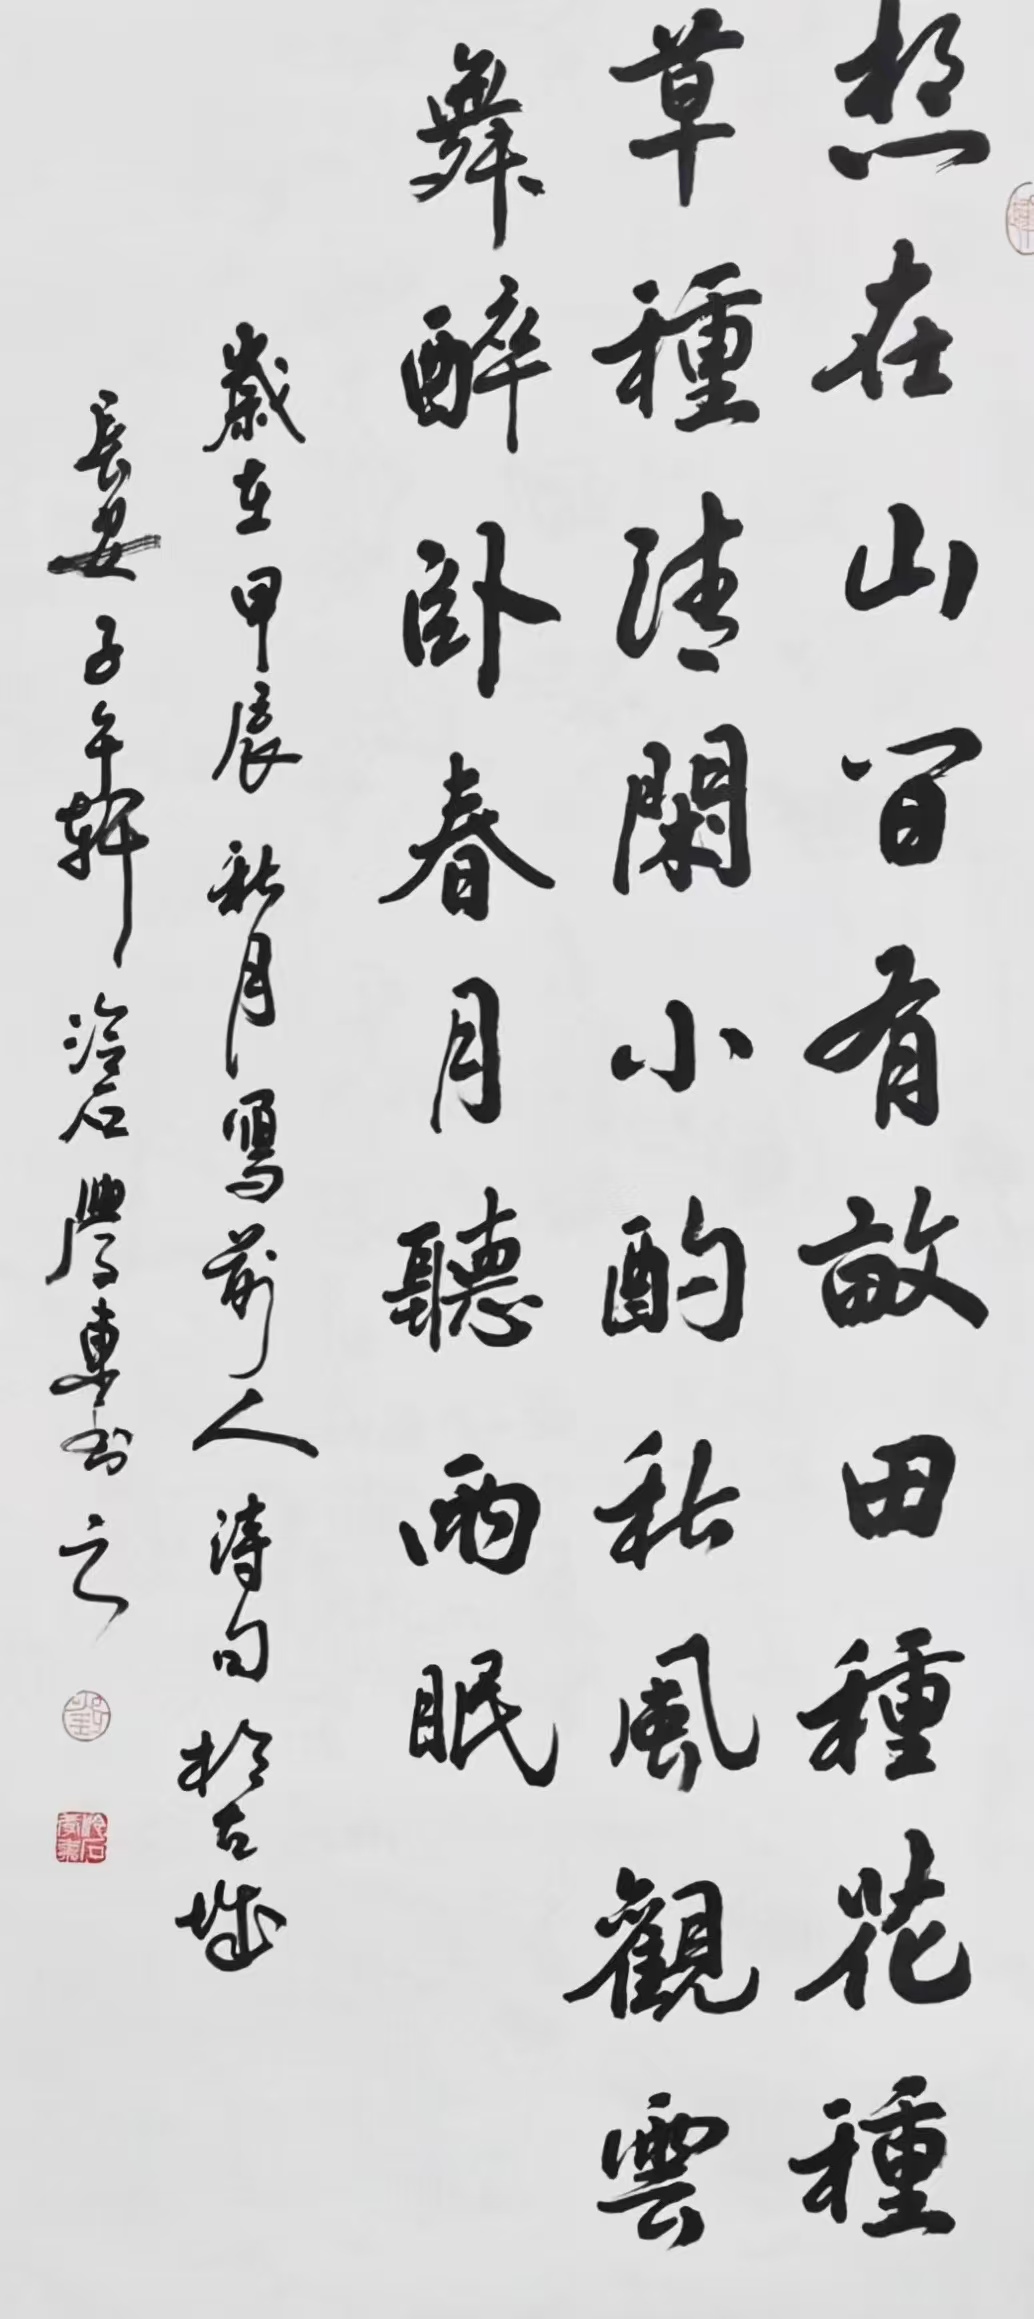 愁在山间有畝田種花種
草種清閑小酌秋風觀雲
舞醉卧春月聽雨眠
歲在甲辰秋月寫前人詩句於古城
長安子午軒冷石學東書之